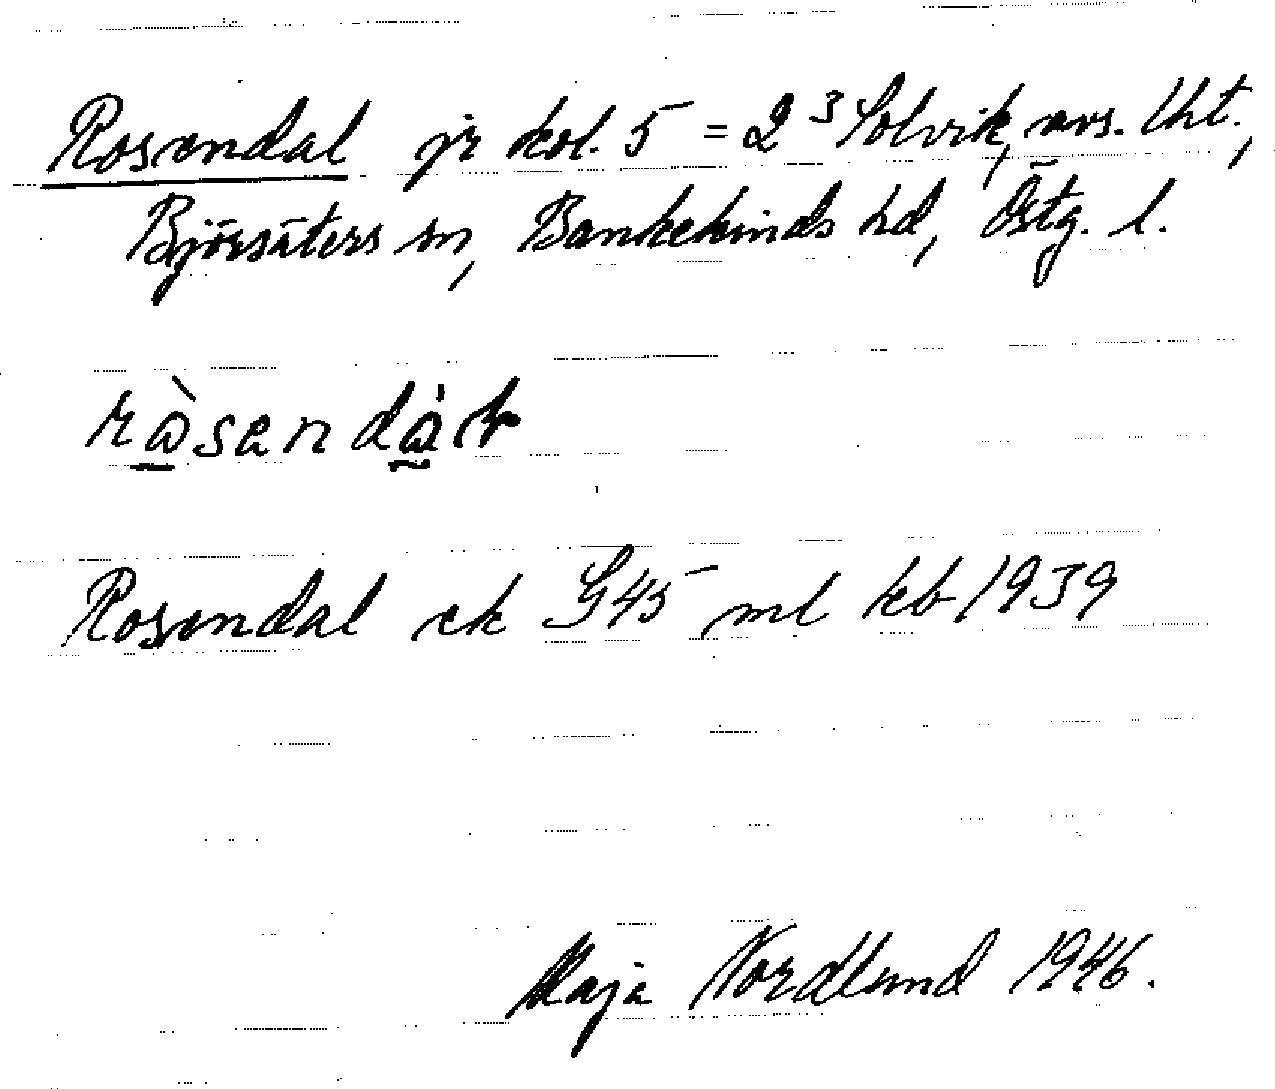 Rosendal jr kol. 5 = 2³ Solvik, avs. Uht.,
Björsäters sn, Bankekinds hd, Östg. l.
Rosendal ek G45 ml kb 1939
Maja Nordlund 1946.